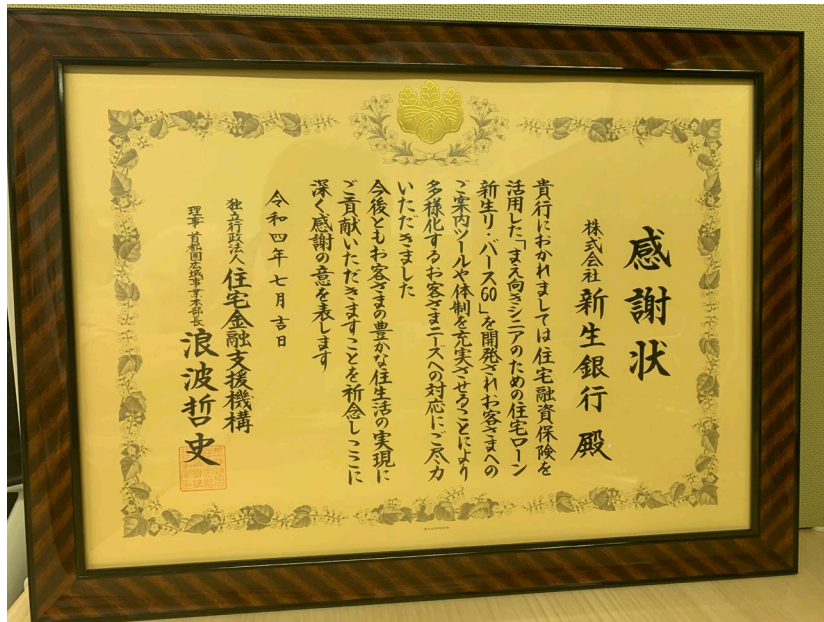 感謝状
株式会社 新生銀行 殿
貴行におかれましては住宅融資保険を
活用した「まえ向きシニアのための住宅ローン
新生リ・バース60」を開発されお客さまへの
ご案内ツールや体制を充実させることにより
多様化するお客さまニーズへの対応にご尽力
いただきました
今後ともお客さまの豊かな住生活の実現に
ご貢献いただきますことを祈念しここに
深く感謝の意を表します
令和四年七月吉日
独立行政法人 住宅金融支援機構
理事 首都圏広域事業本部長 浪波哲史